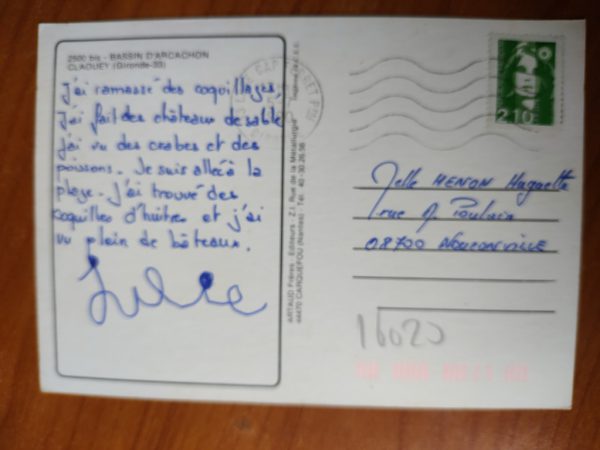 2500 bis - BASSIN D'ARCACHON
CLAOUEY (Gironde-33)
j'ai ramassé des coquillages,
j'ai fait des châteaux de sable
j'ai vu des crabes et des
poissons. Je suis allée à la
plage. J'ai trouvé des
coquilles d'huitres et j'ai
vu plein de bâteaux.
ARTAUD Frères - Editeurs - Z.I. Rue de la Métallurgie
44470 CARQUEFOU (Nantes) - Tél. 40-30-26-56
2,10
Melle HENON Huguette
1 rue A. Poulain
08700 NOUZONVILLE
16020